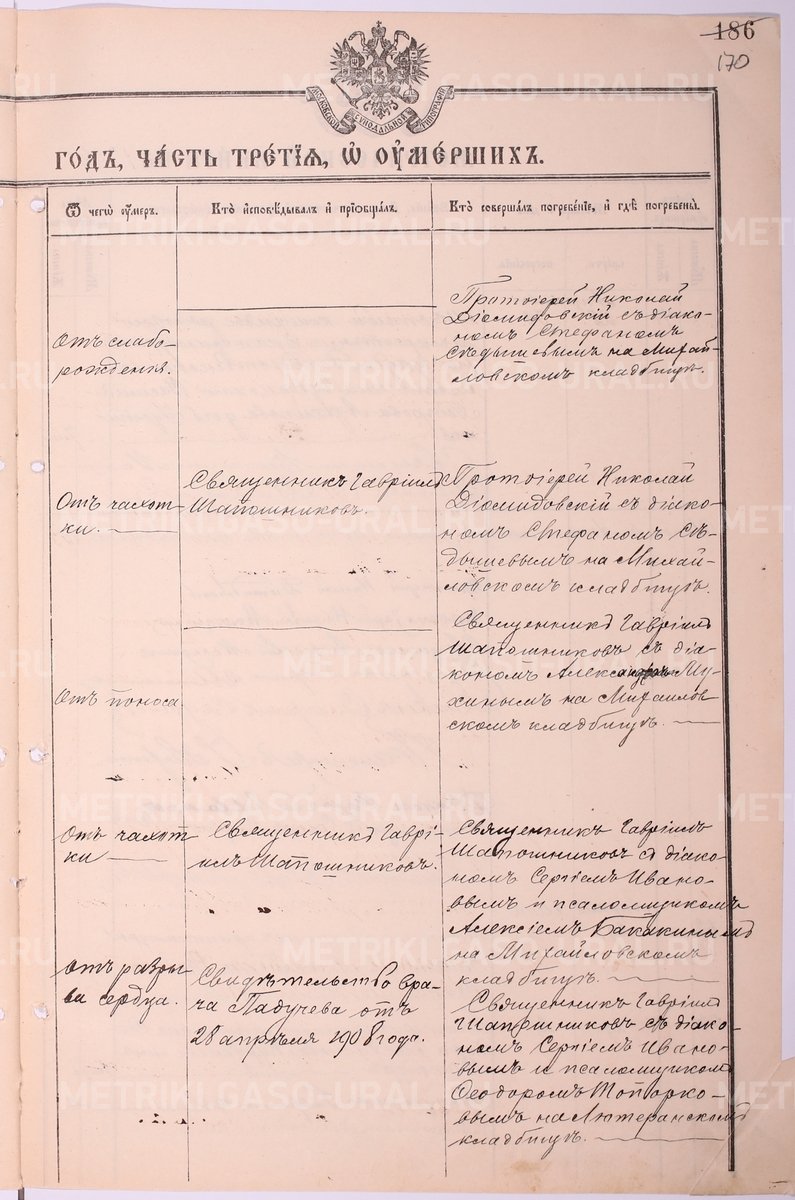 186
170
МОСКОВСКОЙ СУНОДАЛЬНОЙ ТИПОГРАФІИ
ГО́ДЪ, ЧА́СТЬ ТРЕ́ТІѦ, Ѡ҆ ОУ҆МЕ́РШИХЪ.
Ѿ чегѡ̀ оу҆́меръ.
Кто̀ и҆сповѣ́дывалъ и҆ прїѡбща́лъ.
Кто̀ соверша́лъ погребе́нїе, и҆ гдѣ̀ погребены̀.
Отъ слабо-
рожденія.
Протоіерей Николай
Діомидовскій съ діако-
номъ Стефаномъ
Сѣдышевымъ на Михай-
ловскомъ кладбищѣ.
Отъ чахот-
ки.
Священникъ Гавріилъ
Шапошниковъ.
Протоіерей Николай
Діомидовскій съ діако-
номъ Стефаномъ Сѣ-
дышевымъ на Михай-
ловскомъ кладбищѣ.
Отъ поноса.
Священникъ Гавріилъ
Шапошниковъ съ діа-
кономъ Александромъ Му-
хинымъ на Михайлов
скомъ кладбищѣ.
Отъ чахот
ки
Священникъ Гаврі-
илъ Шапошниковъ.
Священникъ Гавріилъ
Шапошниковъ съ діако-
номъ Сергіемъ Ивано-
вымъ и псаломщикомъ
Алексіемъ Бакакинымъ
на Михайловскомъ
кладбищѣ.
Отъ разры-
ва сердца.
Свидѣтельство вра-
ча Падучева отъ
28 апрѣля 1908 года.
Священникъ Гавріилъ
Шапошниковъ съ діако-
номъ Сергіемъ Ивано-
вымъ и псаломщикомъ
Ѳеодоромъ Топорко-
вымъ на Лютеранскомъ
кладбищѣ.
METRIKI.GASO-URAL.RU